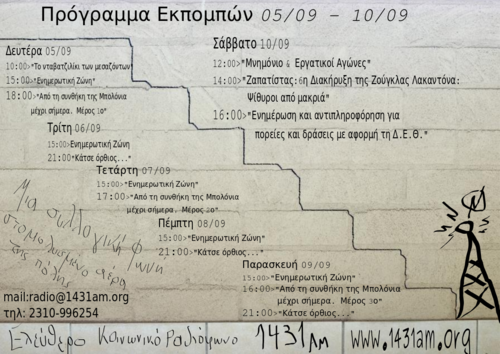 Πρόγραμμα Εκπομπών 05/09 – 10/09
Δευτέρα 05/09
10:00>"Το νταβατζιλίκι των μεσαζόντων"
15:00>"Ενημερωτική Ζώνη"
18:00>"Από τη συνθήκη της Μπολόνια
μέχρι σήμερα. Μέρος 1ο"
Τρίτη 06/09
15:00>Ενημερωτική Ζώνη
21:00"Κάτσε όρθιος..."
Τετάρτη 07/09
15:00>"Ενημερωτική Ζώνη"
17:00>"Από τη συνθήκη της Μπολόνια
μέχρι σήμερα. Μέρος 2ο"
Πέμπτη 08/09
15:00>"Ενημερωτική Ζώνη"
21:00>"Κάτσε όρθιος..."
Παρασκευή 09/09
15:00>"Ενημερωτική Ζώνη"
16:00>"Από τη συνθήκη της Μπολόνια
μέχρι σήμερα. Μέρος 3ο"
21:00>"Κάτσε όρθιος..."
Σάββατο 10/09
12:00>"Μνημόνιο & Εργατικοί Αγώνες"
14:00>"Ζαπατίστας:6η Διακήρυξη της Ζούγκλας Λακαντόνα:
Ψίθυροι από μακριά"
16:00>"Ενημέρωση και αντιπληροφόρηση για
πορείες και δράσεις με αφορμή τη Δ.Ε.Θ."
Μια συλλογική φωνή
στο μολυσμένο αέρα
της πόλης
mail:radio@1431am.org
τηλ: 2310-996254
Ελεύθερο Κοινωνικό Ραδιόφωνο 1431 AM www.1431am.org